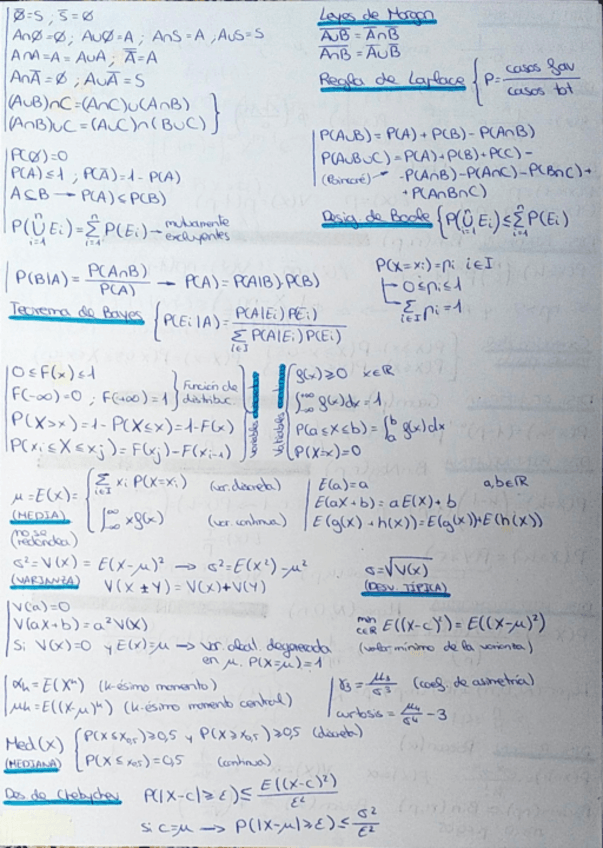 Ø̅=S , S̅=Ø
A∩Ø=Ø; A∪Ø=A ; A∩S=A ,A∪S=S
A∩A=A=A∪A; A̿=A
A∩A̅=Ø ; A∪A̅=S
(A∪B)∩C=(A∩C)∪(A∩B)
(A∩B)∪C=(A∪C)∩(B∪C)
Leyes de Morgan
A̅∪̅B̅ = A̅∩B̅
A̅∩̅B̅ = A̅∪B̅
Regla de Laplace { P= casos fav / casos tot
P(Ø)=0
P(A)≤1 ; P(A̅)=1-P(A)
A⊆B → P(A)≤P(B)
P(⋃ⁿᵢ₌₁ Ei)=∑ⁿᵢ₌₁ P(Ei) → mutuamente excluyentes
P(A∪B)=P(A)+P(B)-P(A∩B)
P(A∪B∪C)=P(A)+P(B)+P(C)-
-P(A∩B)-P(A∩C)-P(B∩C)+
+P(A∩B∩C)
Desig. de Boole { P(⋃ⁿᵢ₌₁ Ei)≤∑ⁿᵢ₌₁ P(Ei)
P(B|A)= P(A∩B) / P(A) → P(A)=P(A|B).P(B)
P(X=xi)=pi i∈I
0≤pi≤1
∑ᵢ∈I pi=1
Teorema de Bayes { P(Ei|A)= P(A|Ei)P(Ei) / ∑ᵢ∈I P(A|Ei)P(Ei)
0≤F(x)≤1
F(-∞)=0 ; F(+∞)=1 } Función de distribuc.
P(X>x)=1-P(X≤x)=1-F(x)
P(xi≤X≤xj)=F(xj)-F(xi-1)
Variables
Variables
f(x)≥0 x∈R
∫^∞_-∞ f(x)dx=1
P(a≤X≤b)=∫^b_a f(x)dx
P(X=x)=0
μ=E(X)= { ∑ᵢ∈I xi P(X=xi) (var. discreta)
∫^∞_-∞ xf(x) (var. continua)
(MEDIA)
(no se redondea)
E(a)=a a,b∈R
E(aX+b)=aE(X)+b
E(g(x)+h(x))=E(g(x))+E(h(x))
σ²=V(X)=E(X-μ)² → σ²=E(X²)-μ²
(VARIANZA) V(X±Y)=V(X)+V(Y)
σ=√V(X)
(DESV. TÍPICA)
V(a)=0
V(aX+b)=a²V(X)
Si V(X)=0 y E(X)=μ → var. aleat. degenerada
en μ. P(X=μ)=1
min c∈R E((X-c)²)=E((X-μ)²)
(valor mínimo de la varianza)
αk=E(X^k) (k-ésimo momento)
μk=E((X-μ)^k) (k-ésimo momento central)
γ3= μ3 / σ³ (coef. de asimetría)
curtosis= μ4 / σ⁴ -3
Med(X) { P(X≤x0,5)≥0,5 y P(X≥x0,5)≥0,5 (discreta)
(MEDIANA) P(X≤x0,5)=0,5 (continua)
Des de Chebychev P(|X-c|≥ε)≤ E((X-c)²) / ε²
si c=μ → P(|X-μ|≥ε)≤ σ² / ε²